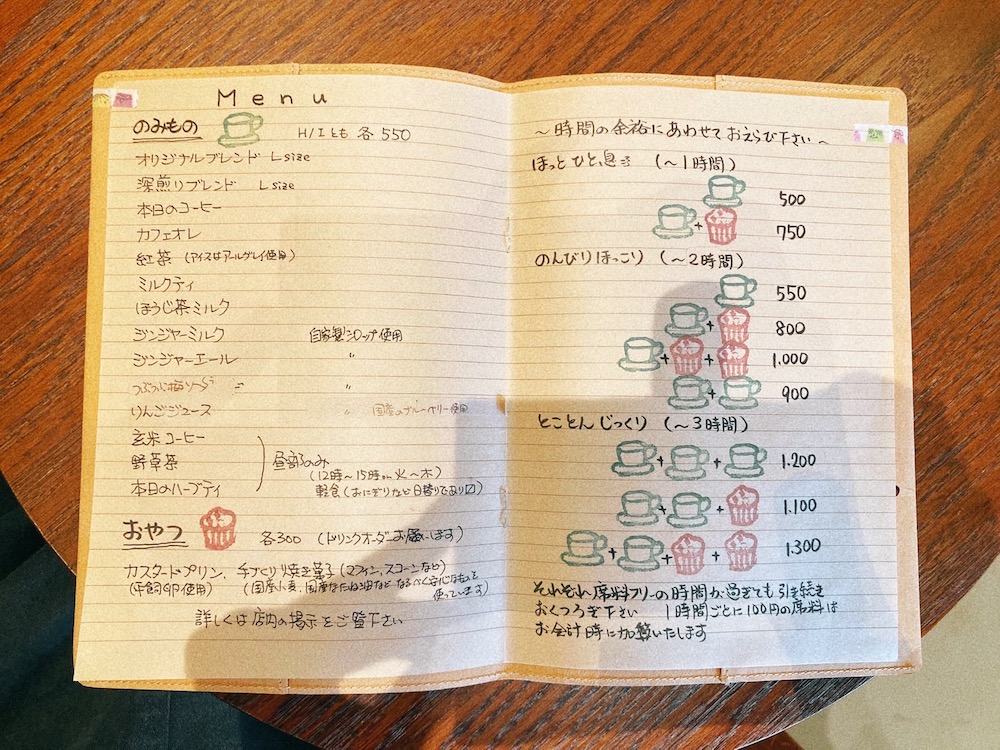 Menu
のみもの H/Iとも 各550
オリジナルブレンド L size
深煎りブレンド L size
本日のコーヒー
カフェオレ
紅茶 (アイスはアールグレイ使用)
ミルクティ
ほうじ茶ミルク
ジンジャーミルク 自家製シロップ使用
ジンジャーエール 〃
〃
りんごジュース 〃 国産のブルーベリー使用
玄米コーヒー
野草茶
本日のハーブティ
昼部のみ
(12時〜15時 火〜木)
軽食(おにぎりなど日替りであり〼)
おやつ 各300 (ドリンクオーダーお願いします)
カスタードプリン、手づくり焼き菓子(マフィン、スコーンなど)
(平飼卵使用) (国産小麦、国産なたね油など なるべく安心なものを
使っています)
詳しくは店内の掲示をご覧下さい
〜時間の余裕にあわせておえらび下さい〜
ほっとひと息 (〜1時間)
500
+ 750
のんびりほっこり (〜2時間)
550
+ 800
+ + 1.000
+ 900
とことんじっくり (〜3時間)
+ + 1.200
+ + 1.100
+ + + 1.300
それぞれ席料フリーの時間が過ぎても引き続き
おくつろぎ下さい 1時間ごとに100円の席料は
お会計時に加算いたします